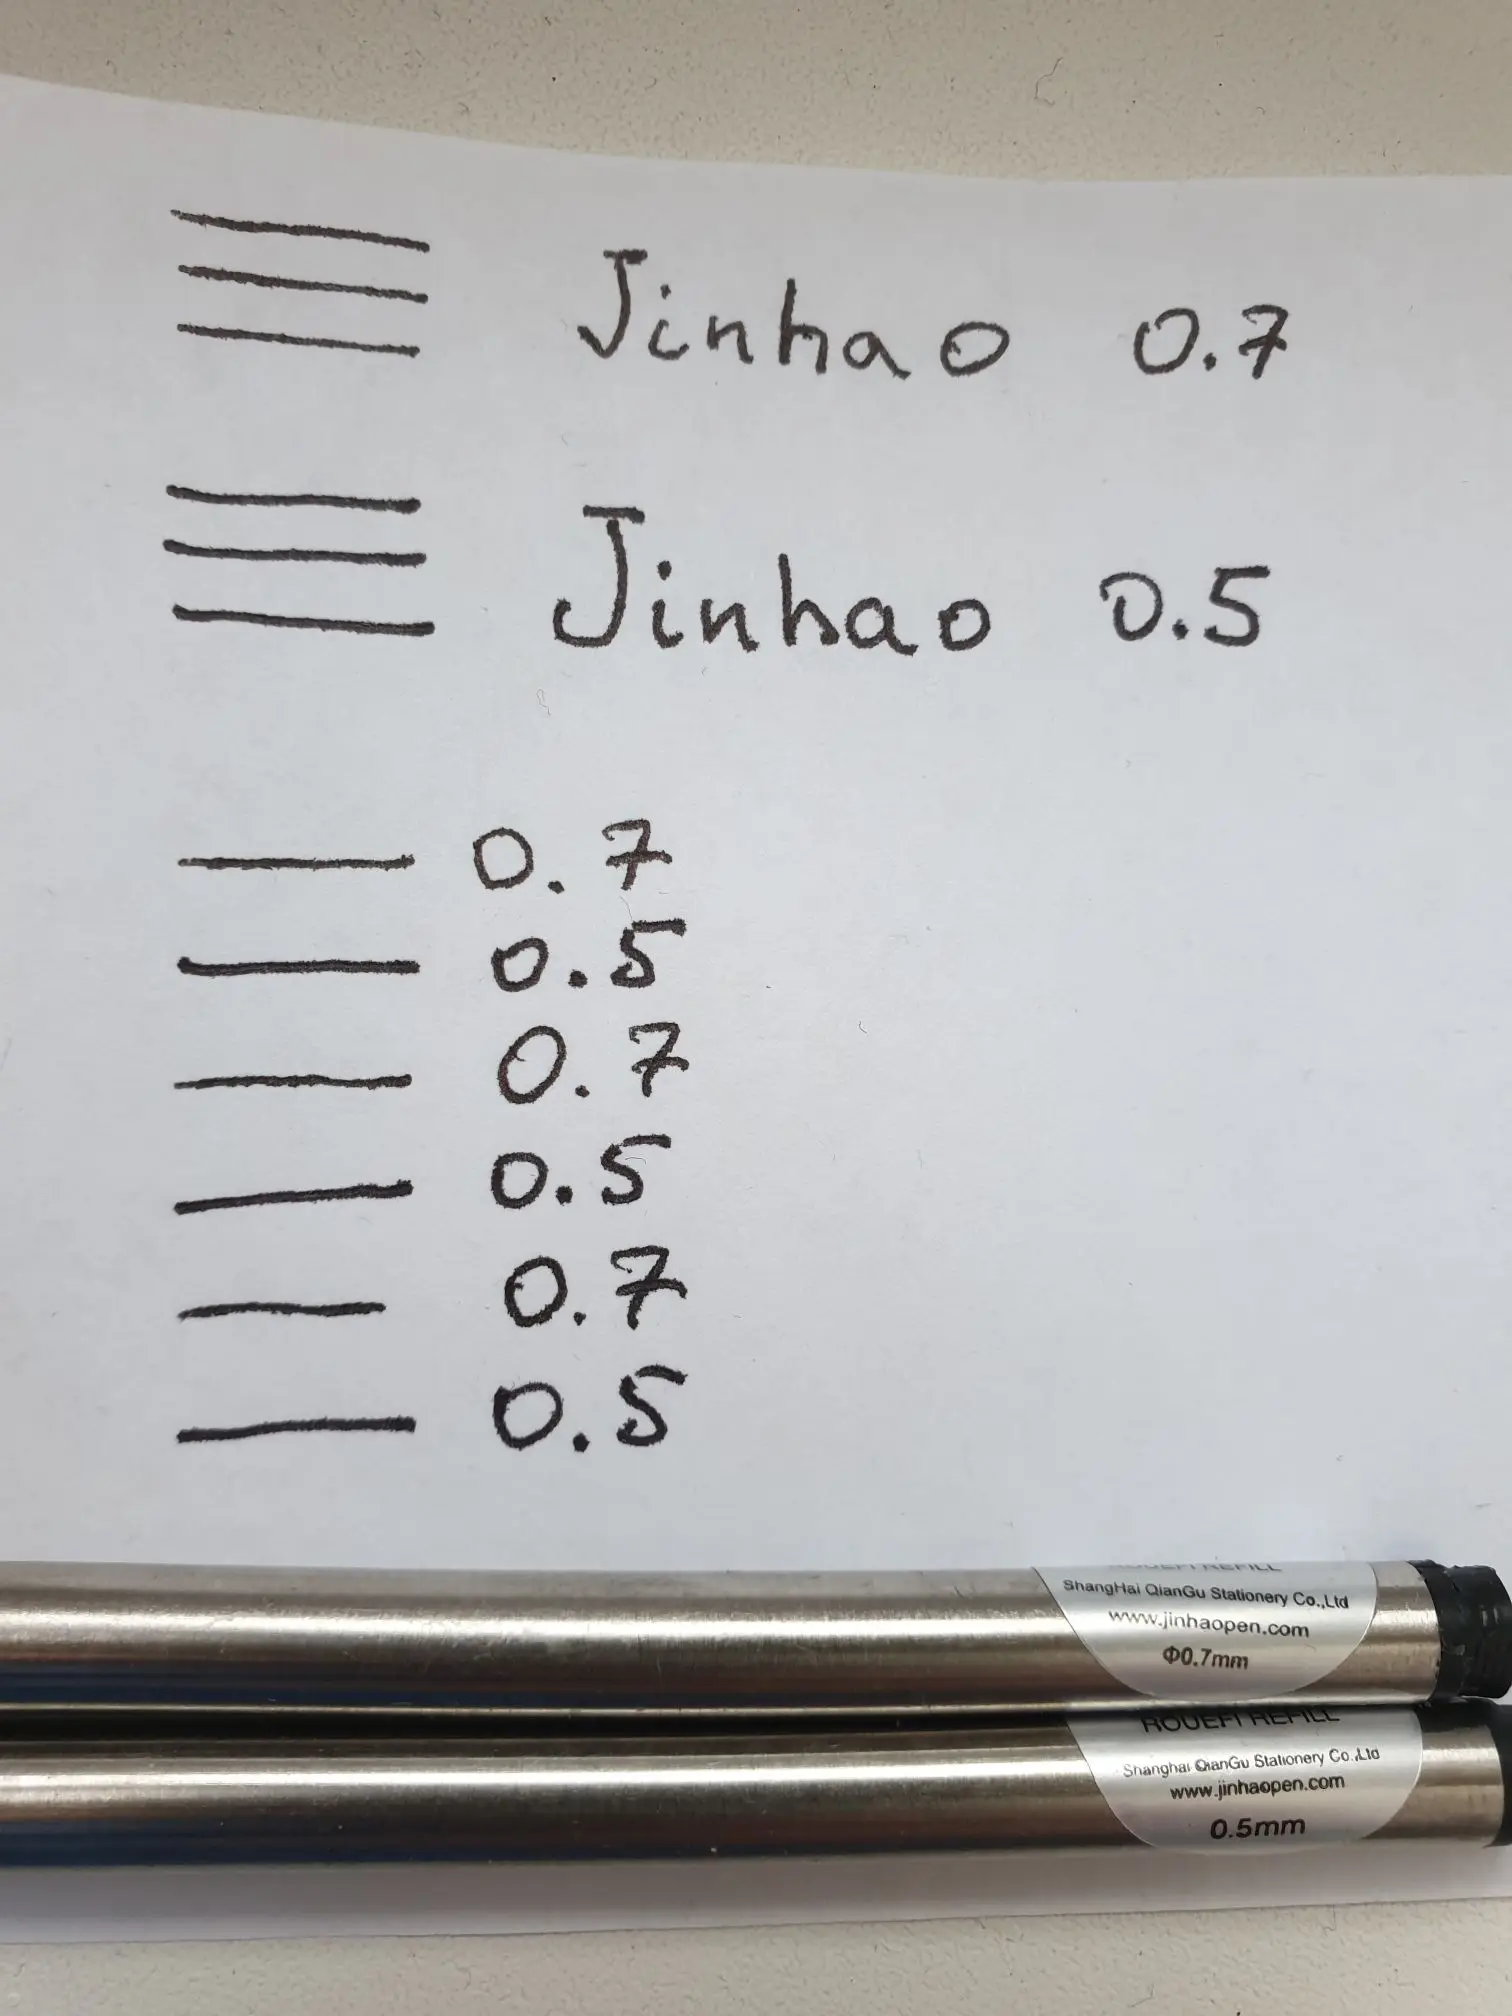 Jinhao 0.7
Jinhao 0.5
0.7
0.5
0.7
0.5
0.7
0.5
ROUEFI REFILL
ShangHai QianGu Stationery Co.,Ltd
www.jinhaopen.com
Φ0.7mm
ROUEFI REFILL
Shanghai QianGu Stationery Co.,Ltd
www.jinhaopen.com
0.5mm